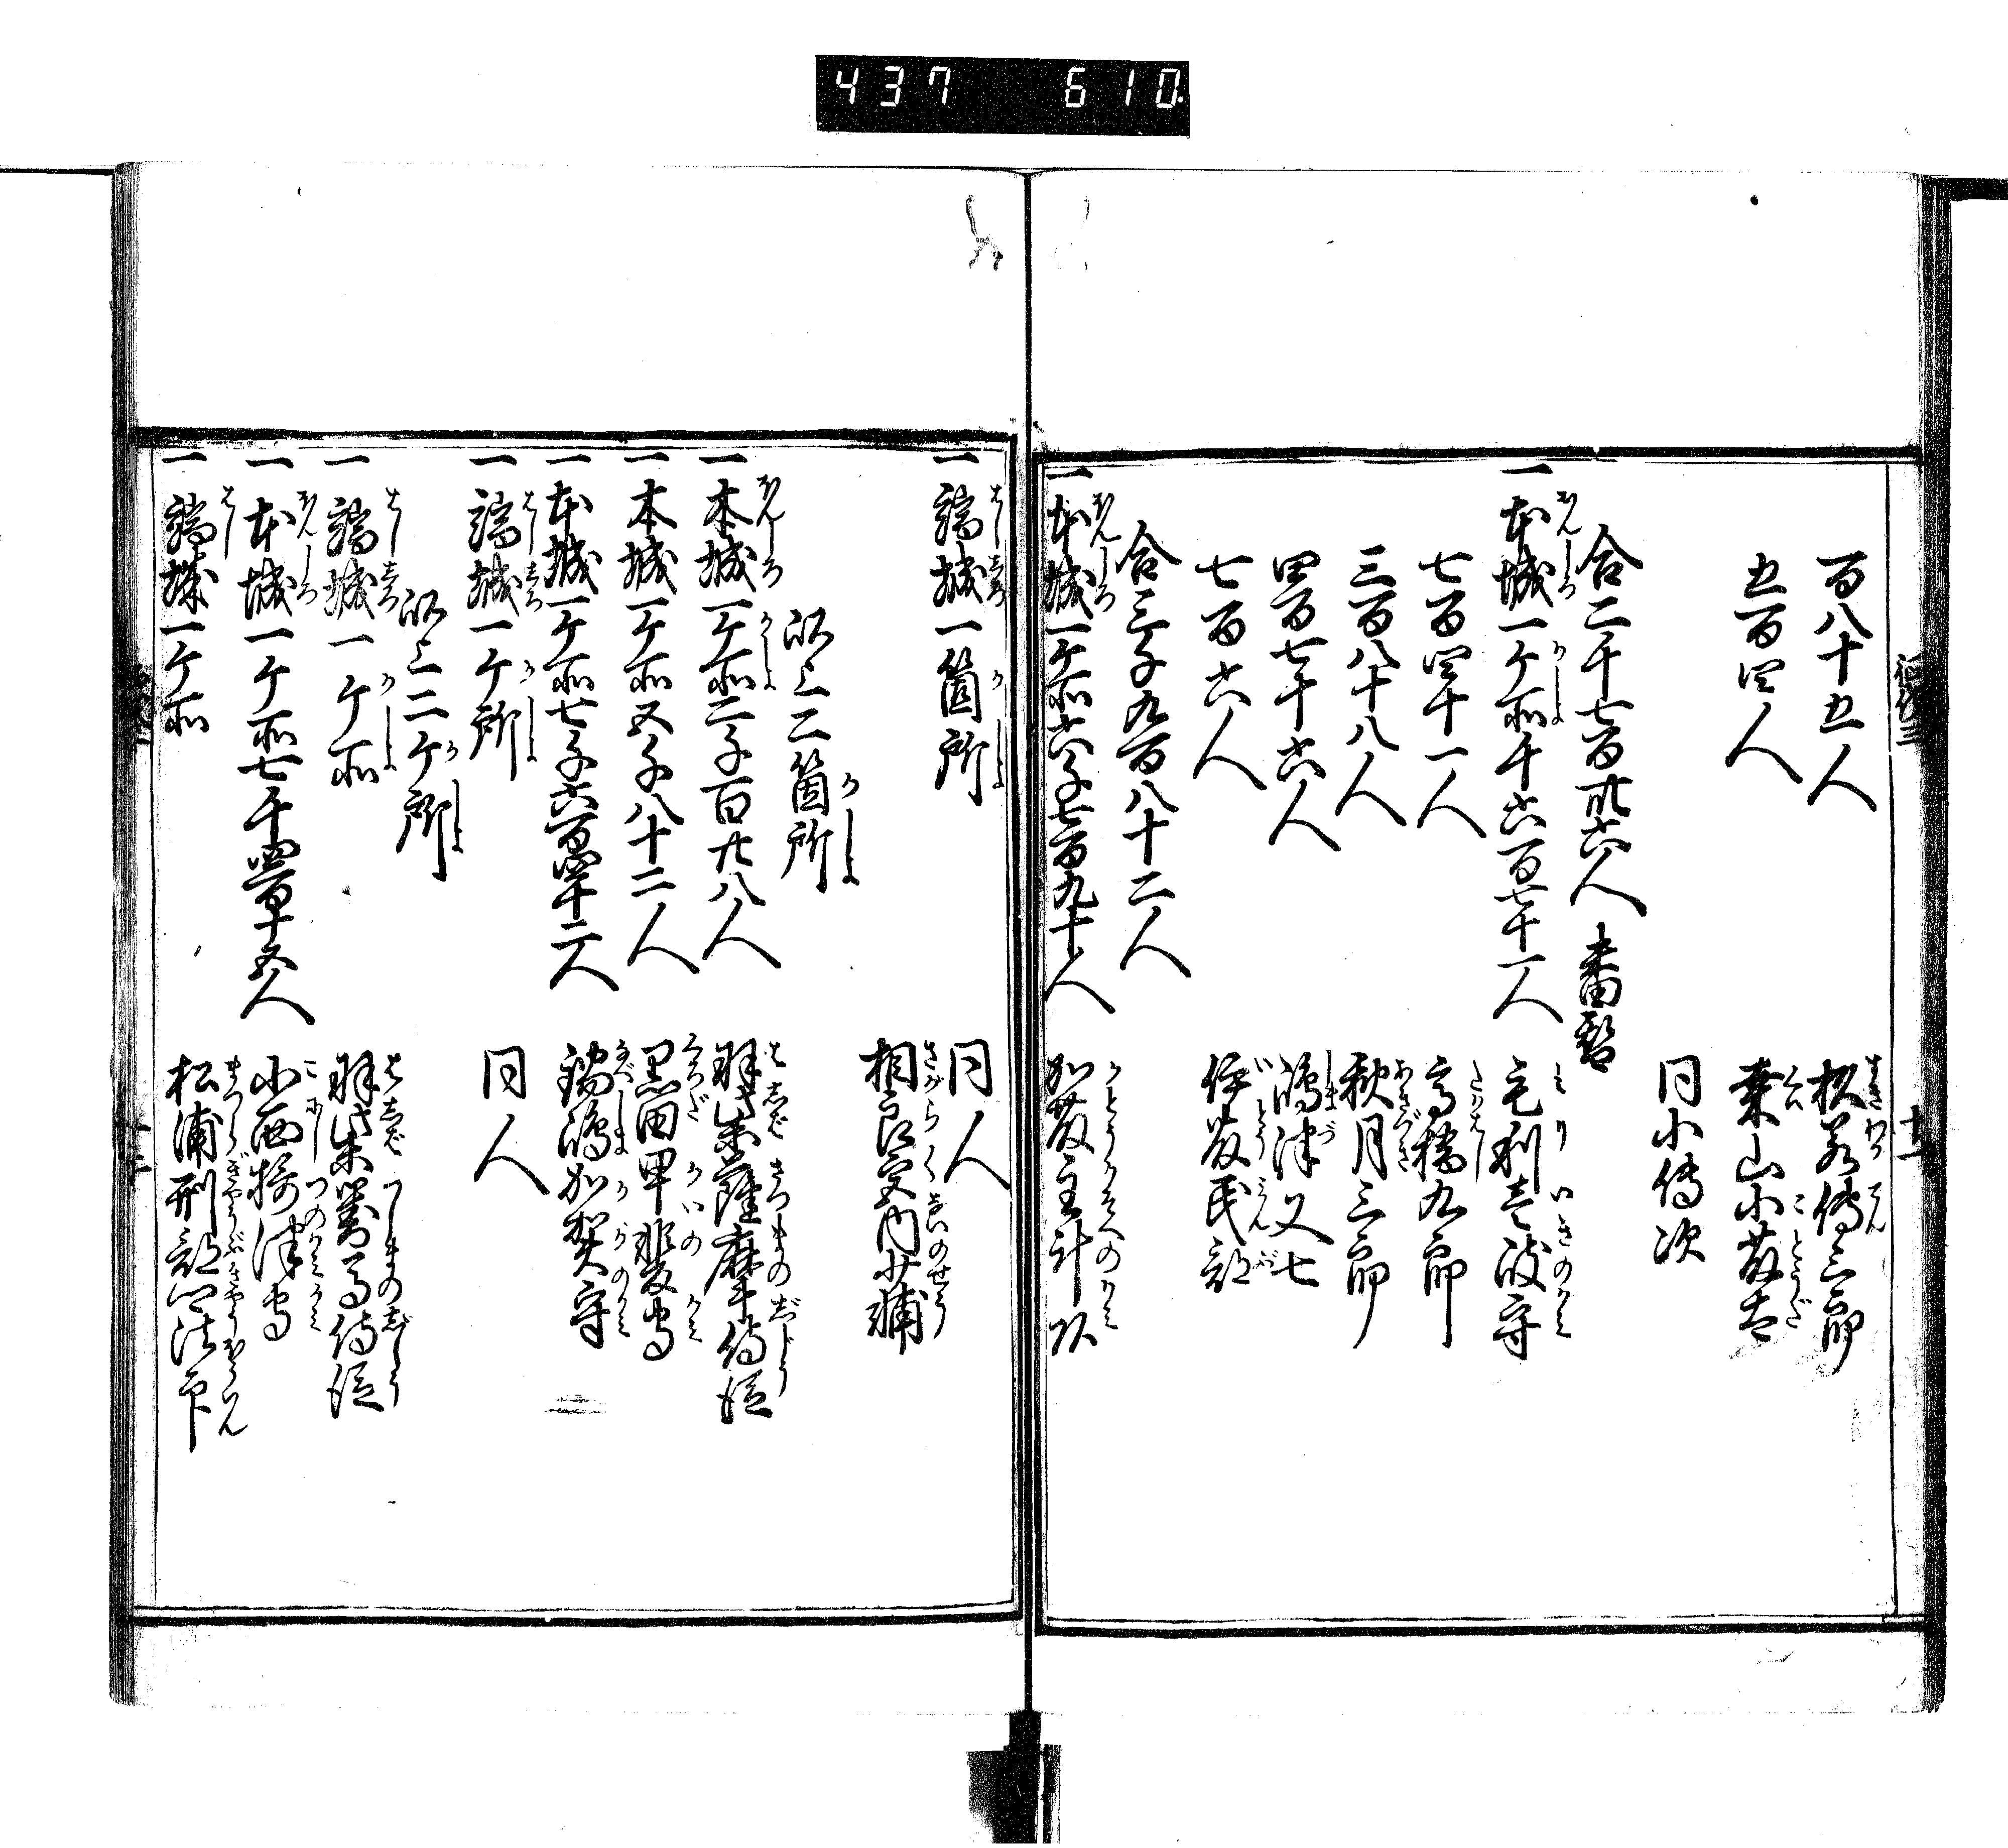 437 610
百八十五人 杦若傳三郎
五百四人 桑山小藤太
同小傳次
合二千七百廿六人 番替
一本城一ケ所千六百七十一人 毛利壱岐守
七百四十一人 高橋九郎
三百八十八人 秋月三郎
四百七十六人 嶋津又七
七百六人 伊藤民部
合三千九百八十二人
一本城一ケ所六千七百九十人 加藤主計頭
一端城一箇所 同人
相良宮内少輔
以上二箇所
一本城一ケ所二千百廿八人 羽柴薩摩侍従
一本城一ケ所五千八十二人 黒田甲斐守
一本城一ケ所七千六百四十二人 鍋嶋加賀守
一端城一ケ所 同人
以上二ケ所
一端城一ケ所 羽柴對馬侍従
一本城一ケ所七千四百十五人 小西摂津守
一端城一ケ所 松浦刑部卿法印